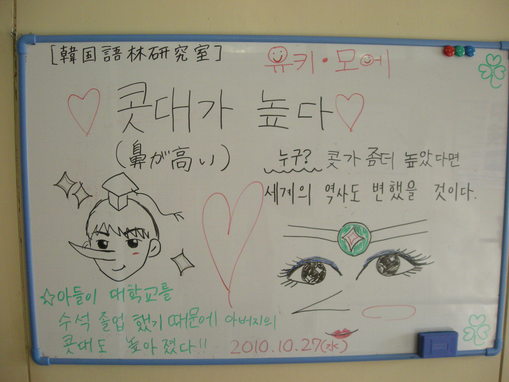 [韓国語林研究室]
유키・모에
콧대가 높다
(鼻が高い)
누구? 콧가 좀더 높았다면
세계의 역사도 변했을 것이다.
☆아들이 대학교를
수석 졸업 했기 때문에 아버지의
콧대도 높아졌다!!
2010.10.27(水)